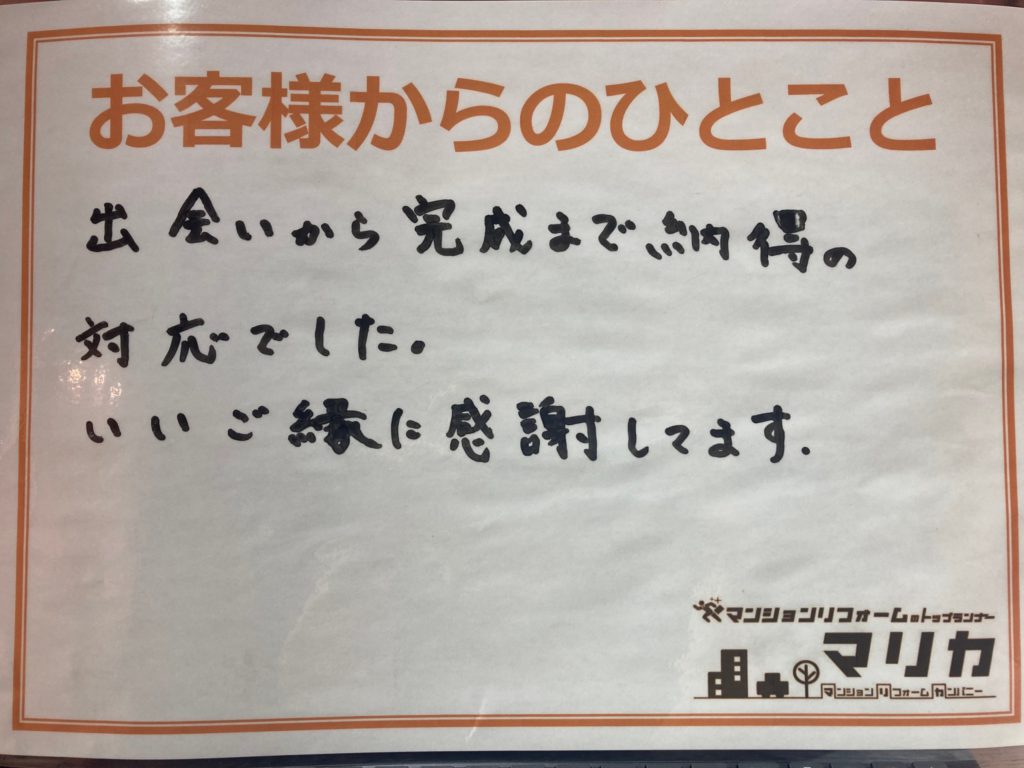 お客様からのひとこと
出会いから完成まで納得の
対応でした。
いいご縁に感謝してます.
マンションリフォームのトップランナー
マリカ
マンションリフォームカンパニー